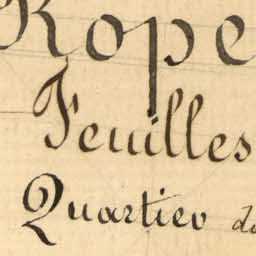 Rope
Feuilles
Quartier de